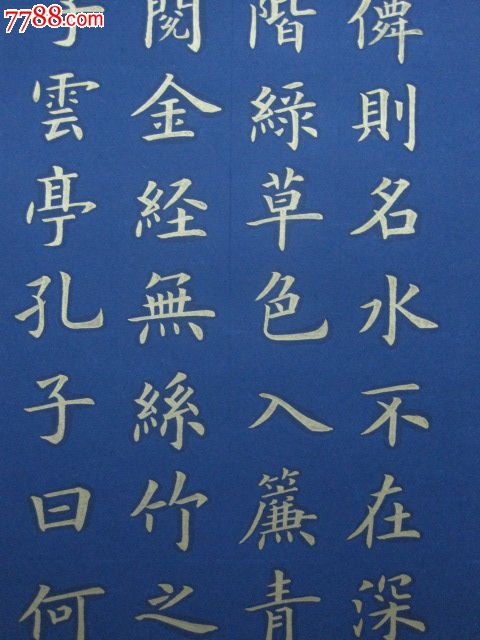 7788.com
僊則名水不在深
階綠草色入簾青
閱金経無絲竹之
子雲亭孔子曰何